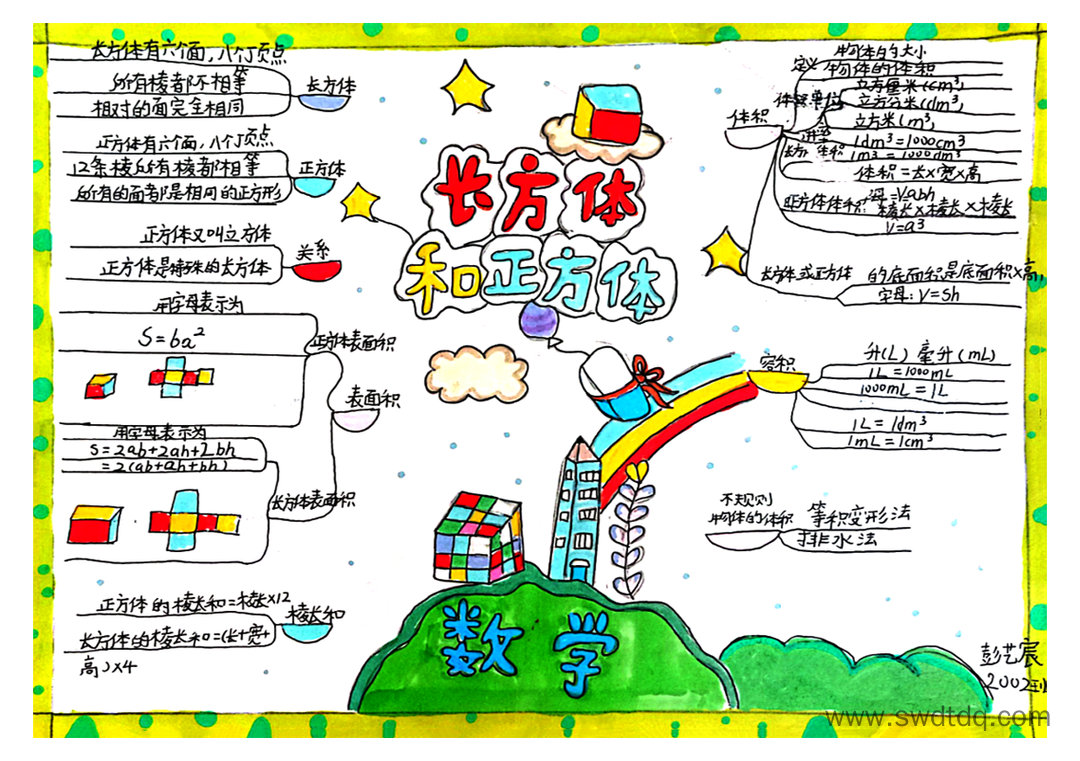 长方体有六个面，八个顶点
所有棱都不相等
相对的面完全相同
长方体
正方体有六个面，八个顶点
12条棱，所有棱都相等
所有的面都是相同的正方形
正方体
正方体又叫立方体
正方体是特殊的长方体
关系
用字母表示为
S=6a²
正方体表面积
表面积
用字母表示为
S=2ab+2ah+2bh
=2(ab+ah+bh)
长方体表面积
正方体的棱长和=棱长×12
长方体的棱长和=(长+宽+
高)×4
棱长和
长方体
和正方体
数学
体积
定义
物体的大小
物体的体积
体积单位
立方厘米(cm³)
立方分米(dm³)
立方米(m³)
进率
1dm³=1000cm³
1m³=1000dm³
体积=长×宽×高
=V=abh
正方体体积
棱长×棱长×棱长
V=a³
长方体或正方体
的底面积是底面积×高，
字母：V=Sh
容积
升(L) 毫升(mL)
1L=1000mL
1000mL=1L
1L=1dm³
1mL=1cm³
不规则
物体的体积
等积变形法
排水法
彭艺宸
2002班
www.swdtdq.com